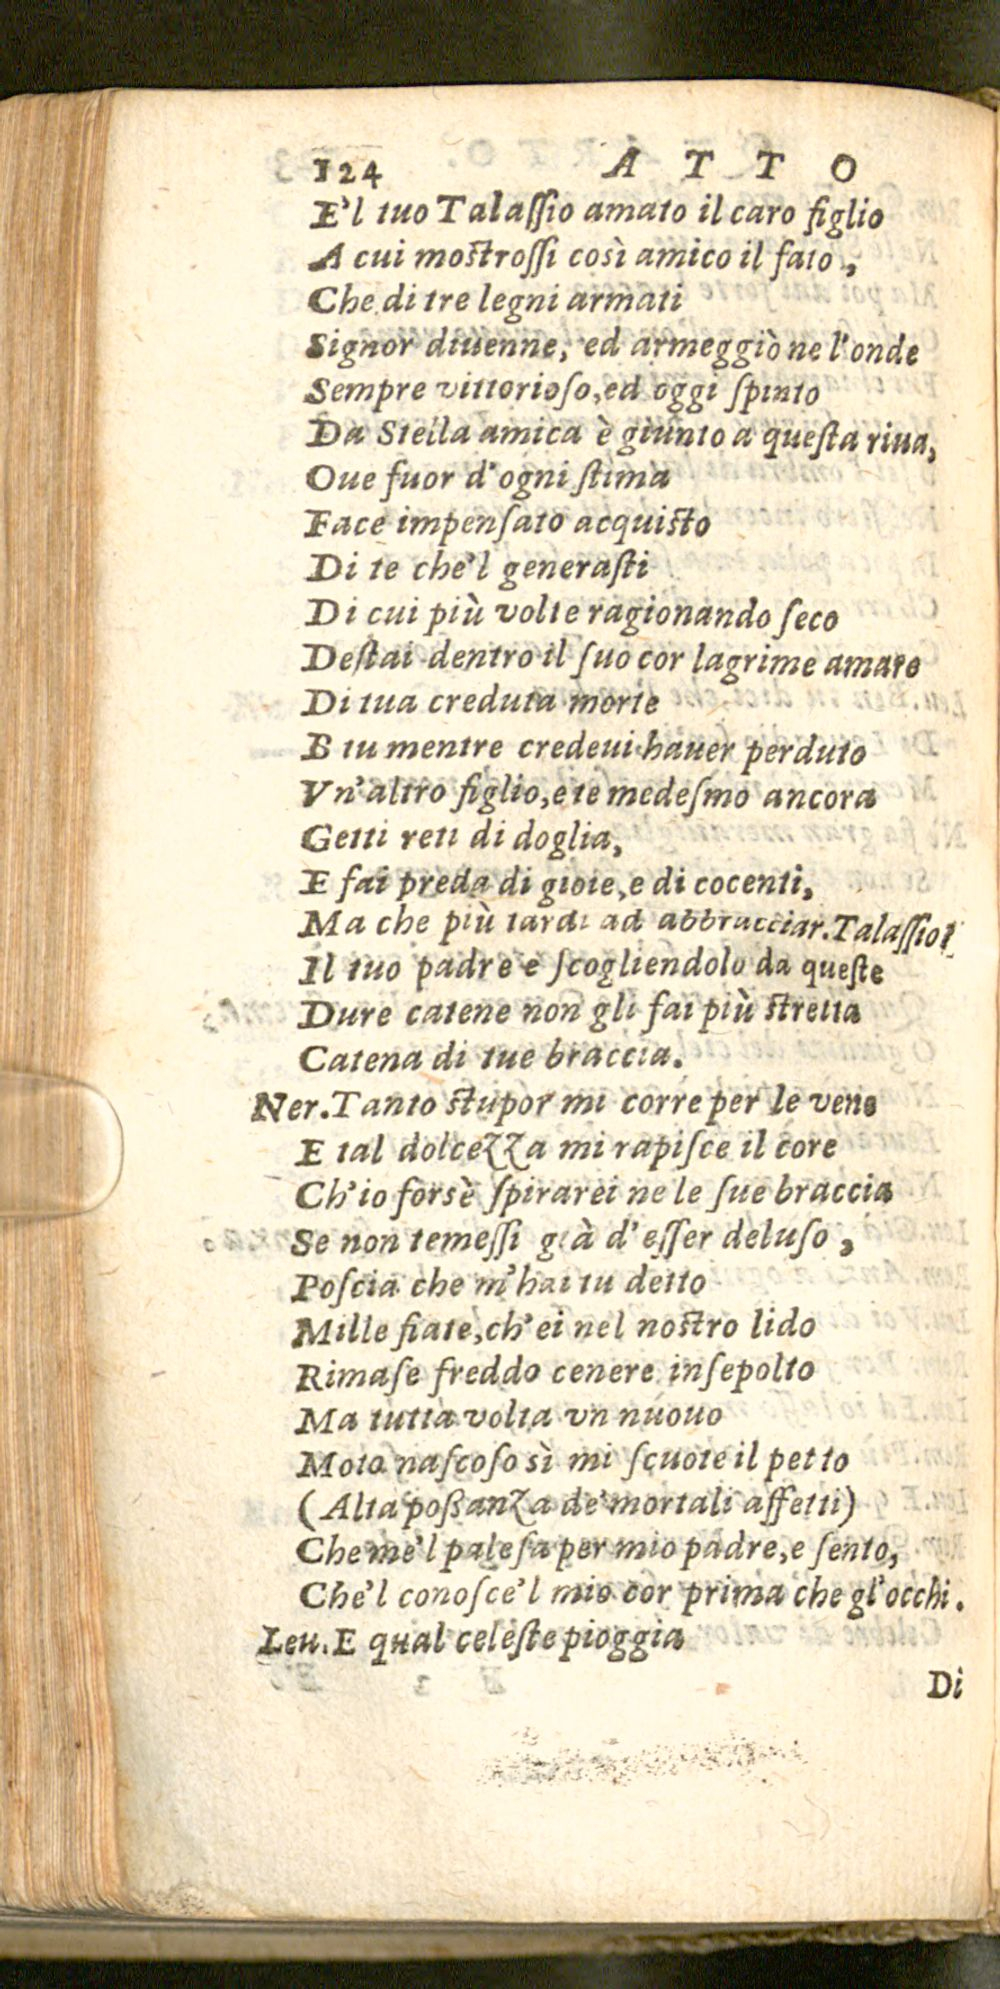 124 A T T O
E'l tuo Talaſſio amato il caro figlio
A cui moſtroſſi così amico il fato,
Che di tre legni armati
Signor diuenne, ed armeggiò ne l'onde
Sempre vittorioſo, ed oggi ſpinto
Da Stella amica è giunto a queſta riua,
Oue fuor d'ogni ſtima
Face impenſato acquiſto
Di te che'l generaſti
Di cui più volte ragionando ſeco
Deſtai dentro il ſuo cor lagrime amare
Di tua creduta morte
E tu mentre credeui hauer perduto
Vn'altro figlio, e te medeſmo ancora
Getti reti di doglia,
E fai preda di gioie, e di cocenti,
Ma che più tardi ad abbracciar. Talaſſio!
Il tuo padre e ſcogliendolo da queſte
Dure catene non gli fai più ſtretta
Catena di tue braccia.
Ner. Tanto ſtupor mi corre per le vene
E tal dolcezza mi rapiſce il core
Ch'io forsè ſpirarei ne le ſue braccia
Se non temeſſi già d'eſſer deluſo,
Poſcia che m'hai tu detto
Mille fiate, ch'ei nel noſtro lido
Rimaſe freddo cenere inſepolto
Ma tutta volta vn nuouo
Moto naſcoſo sì mi ſcuote il petto
(Alta poßanza de' mortali affetti)
Che me'l paleſa per mio padre, e ſento,
Che'l conoſce'l mio cor prima che gl'occhi.
Leu. E qual celeſte pioggia
Di